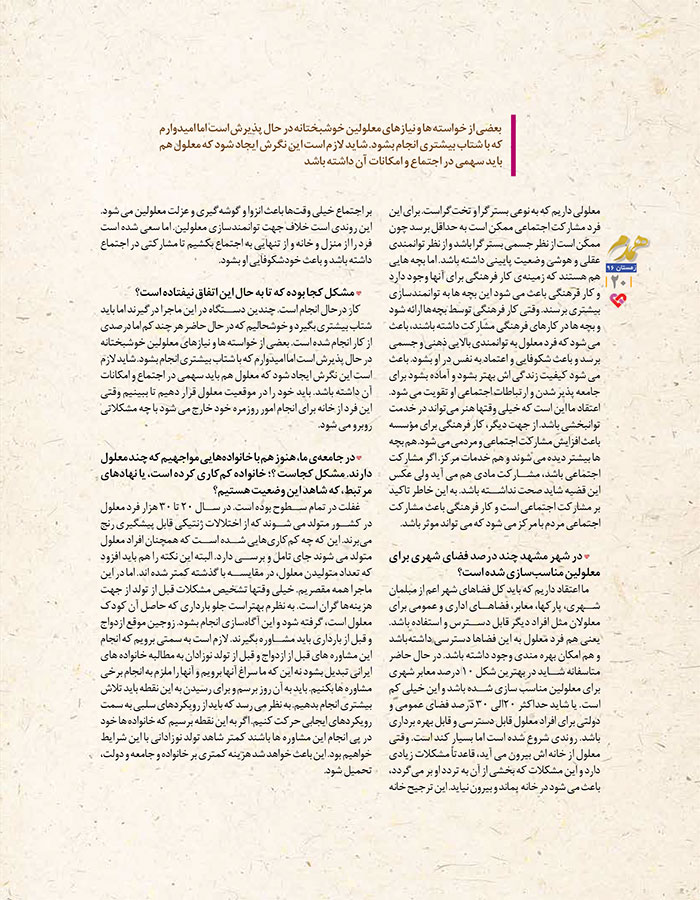 بعضی از خواسته ها و نیازهای معلولین خوشبختانه در حال پذیرش است اما امیدوارم
که با شتاب بیشتری انجام بشود. شاید لازم است این نگرش ایجاد شود که معلول هم
باید سهمی در اجتماع و امکانات آن داشته باشد
همدم
زمستان ۹۶
۲۰
معلولی داریم که به نوعی بسترگرا و تخت گراست. برای این
فرد مشارکت اجتماعی ممکن است به حداقل برسد چون
ممکن است از نظر جسمی بسترگرا باشد و از نظر توانمندی
عقلی و هوشی وضعیت پایینی داشته باشد. اما بچه هایی
هم هستند که زمینه‌ی کار فرهنگی برای آنها وجود دارد
و کار فرهنگی باعث می شود این بچه ها به توانمندسازی
بیشتری برسند. وقتی کار فرهنگی توسط بچه‌ها ارائه شود
و بچه ها در کارهای فرهنگی مشارکت داشته باشند، باعث
می شود که فرد معلول به توانمندی بالایی ذهنی و جسمی
برسد و باعث شکوفایی و اعتماد به نفس در او بشود. باعث
می شود کیفیت زندگی اش بهتر بشود و آماده بشود برای
جامعه پذیر شدن و ارتباطات اجتماعی او تقویت می شود.
اعتقاد ما این است که خیلی وقتها هنر می‌تواند در خدمت
توانبخشی باشد. از جهت دیگر، کار فرهنگی برای مؤسسه
باعث افزایش مشارکت اجتماعی و مردمی می شود. هم بچه
ها بیشتر دیده می‌شوند و هم خدمات مرکز. اگر مشارکت
اجتماعی باشد، مشارکت مادی هم می آید ولی عکس
این قضیه شاید صحت نداشته باشد. به این خاطر تاکید
بر مشارکت اجتماعی است و کار فرهنگی باعث مشارکت
اجتماعی مردم با مرکز می شود که می تواند موثر باشد.
در شهر مشهد چند درصد فضای شهری برای
معلولین مناسب‌سازی شده است؟
ما اعتقاد داریم که باید کل فضاهای شهر اعم از مبلمان
شهری، پارکها، معابر، فضاهای اداری و عمومی برای
معلولان مثل افراد دیگر قابل دسترس و استفاده باشد.
یعنی هم فرد معلول به این فضاها دسترسی داشته باشد
و هم امکان بهره مندی وجود داشته باشد. در حال حاضر
متاسفانه شاید در بهترین شکل ۱۰ درصد معابر شهری
برای معلولین مناسب سازی شده باشد و این خیلی کم
است. یا شاید حداکثر ۲۰ الی ۳۰ درصد فضای عمومی و
دولتی برای افراد معلول قابل دسترسی و قابل بهره برداری
باشد. روندی شروع شده است اما بسیار کند است. وقتی
معلول از خانه اش بیرون می آید، قاعدتاً مشکلات زیادی
دارد و این مشکلات که بخشی از آن به تردد او بر می‌گردد،
باعث می شود در خانه بماند و بیرون نیاید. این ترجیح خانه
بر اجتماع خیلی وقت‌ها باعث انزوا و گوشه گیری و عزلت معلولین می شود.
این روندی است خلاف جهت توانمندسازی معلولین. اما سعی شده است
فرد را از منزل و خانه و از تنهایی به اجتماع بکشیم تا مشارکتی در اجتماع
داشته باشد و باعث خودشکوفایی او بشود.
مشکل کجا بوده که تا به حال این اتفاق نیفتاده است؟
کار در حال انجام است. چندین دستگاه در این ماجرا درگیرند اما باید
شتاب بیشتری بگیرد و خوشحالیم که در حال حاضر هر چند کم اما درصدی
از کار انجام شده است. بعضی از خواسته ها و نیازهای معلولین خوشبختانه
در حال پذیرش است اما امیدوارم که با شتاب بیشتری انجام بشود. شاید لازم
است این نگرش ایجاد شود که معلول هم باید سهمی در اجتماع و امکانات
آن داشته باشد. باید خود را در موقعیت معلول قرار دهیم تا ببینیم وقتی
این فرد از خانه برای انجام امور روزمره خود خارج می شود با چه مشکلاتی
روبرو می شود.
در جامعه‌ی ما، هنوز هم با خانواده‌هایی مواجهیم که چند معلول
دارند. مشکل کجاست؟؛ خانواده کم کاری کرده است، یا نهادهای
مرتبط، که شاهد این وضعیت هستیم؟
غفلت در تمام سطوح بوده است. در سال ۲۰ تا ۳۰ هزار فرد معلول
در کشور متولد می شوند که از اختلالات ژنتیکی قابل پیشگیری رنج
می‌برند. این که چه کم کاری‌هایی شده است که همچنان افراد معلول
متولد می شوند جای تامل و بررسی دارد. البته این نکته را هم باید افزود
که تعداد متولیدن معلول، در مقایسه با گذشته کمتر شده اند. اما در این
ماجرا همه مقصریم. خیلی وقتها تشخیص مشکلات قبل از تولد از جهت
هزینه‌ها گران است. به نظرم بهتر است جلو بارداری که حاصل آن کودک
معلول است، گرفته شود و این آگاه‌سازی انجام بشود. زوجین موقع ازدواج
و قبل از بارداری باید مشاوره بگیرند. لازم است به سمتی برویم که انجام
این مشاوره های قبل از ازدواج و قبل از تولد نوزادان به مطالبه خانواده های
ایرانی تبدیل بشود نه این که ما سراغ آنها برویم و آنها را ملزم به انجام برخی
مشاوره ها بکنیم. باید به آن روز برسم و برای رسیدن به این نقطه باید تلاش
بیشتری انجام بدهیم. به نظر می رسد که باید از رویکردهای سلبی به سمت
رویکردهای ایجابی حرکت کنیم. اگر به این نقطه برسیم که خانواده ها خود
در پی انجام این مشاوره ها باشند کمتر شاهد تولد نوزادانی با این شرایط
خواهیم بود. این باعث خواهد شد هزینه کمتری بر خانواده و جامعه و دولت،
تحمیل شود.